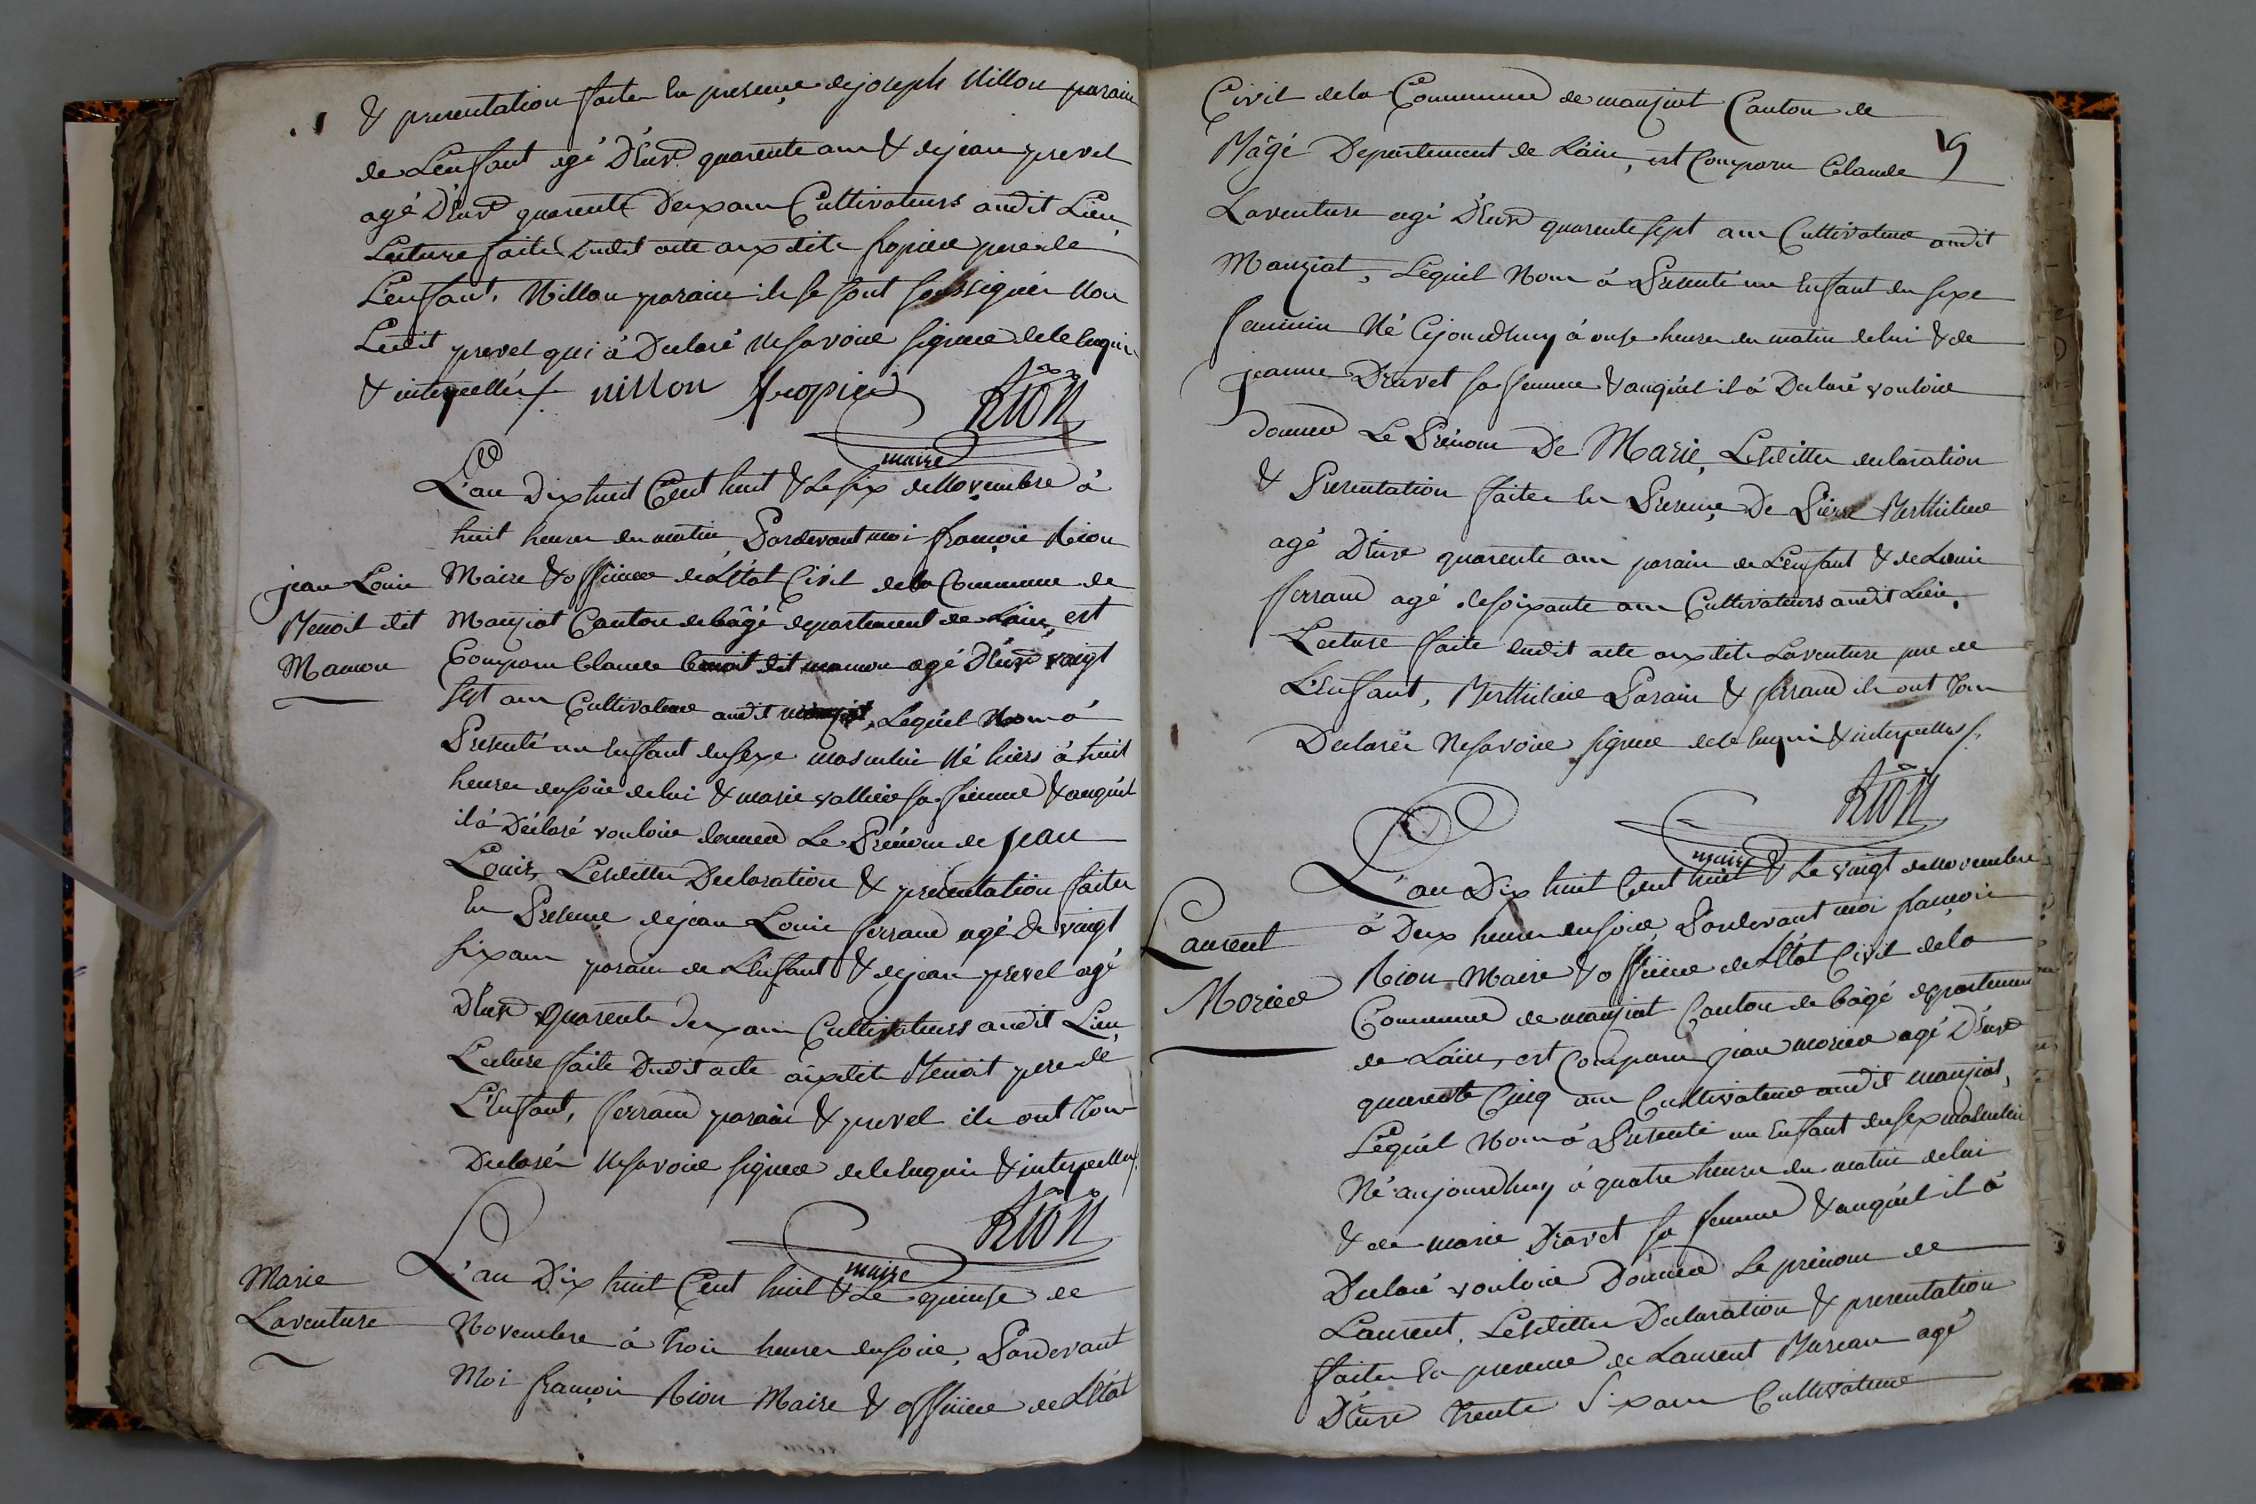 & presentation faites En presence de joseph Nillon parain
de L'enfant agé D'Env. quarente ans & de jean prevel
agé D'Env. quarente Deux ans Cultivateurs audit Lieu
Lecture faite Dudit acte aux dits fropier pere de
L'enfant, Nillon parain ils se sont soussignés Non
Ledit prevel qui à Declaré Ne savoire signer de ce Enquis
& interpellés /. nillon fropier Rion
maire
L'an Dix huit Cent huit & Le six de Novembre à
huit heures du matin, Pardevant moi françois Rion
jean Louis
Benoit dit
Mamon
Maire & officier de L'état Civil de la Commune de
Manziat Canton de bâgé departement de Lain, est
Comparu Claude benoit dit mamon agé D'Env. vingt
sept ans Cultivateur audit, Lequel Nous à
Presenté un Enfant du sexe masculin Né hiers à huit
heures du soire de lui & marie vallier sa femme & auquel
il à Déclaré vouloire donner Le Prénom de jean
Louis, Lesdittes Declaration & presentation faites
En Presence de jean Louis ferrand agé De vingt
six ans parain de L'Enfant & de jean prevel agé
D'Env. quarente deux ans Cultivateurs audit Lieu,
Lecture faite Dudit acte aux dits Benoit pere de
L'Enfant, ferrand parain & prevel ils ont Tous
Declarés Ne savoire signer de ce Enquis & interpellés /.
Rion
maire
Marie
Laventure
L'an Dix huit Cent huit & Le quinse de
Novembre à trois heures du soire, Pardevant
Moi françois Rion Maire & officier de L'état
Civil de la Commune de manziat Canton de
Bâgé Departement de L'ain, est Comparu Claude
Laventure agé D'Env. quarente sept ans Cultivateur audit
Manziat, Lequel Nous à Presenté un Enfant du sexe
feminin Né Cejourdhuy à onse heures du matin de lui & de
jeanne Dravet sa femme & auquel il à Declaré vouloire
donner Le Prénom De Marie, Lesdittes declaration
& Presentation faites En Presence De Pierre Berthilier
agé D'Env. quarente ans parain de L'enfant & de Louis
ferrand agé de soixante ans Cultivateurs audit Lieu,
Lecture faite dudit acte aux dits Laventure pere de
L'Enfant, Berthilier Parain & ferrand ils ont Tous
Declarés Ne savoire signer de ce Enquis & interpellés /.
Rion
maire
Laurent
Morier
L'an Dix huit Cent huit & Le vingt de Novembre
à Deux heures du soire, Pardevant moi françois
Rion Maire & officier de L'état Civil de la
Commune de manziat Canton de bâgé departement
de Lain, est Comparu jean morier agé D'Env.
quarente Cinq ans Cultivateur audit manziat,
Lequel Nous à Presenté un Enfant du sex masculin
Né aujourdhuy à quatre heures du matin de lui
& de marie Dravet sa femme & auquel il à
Declaré vouloire Donner Le prénom de
Laurent, Lesdittes Declaration & presentation
faites En presence de Laurent Bureau agé
D'Env. Trente Six ans Cultivateur